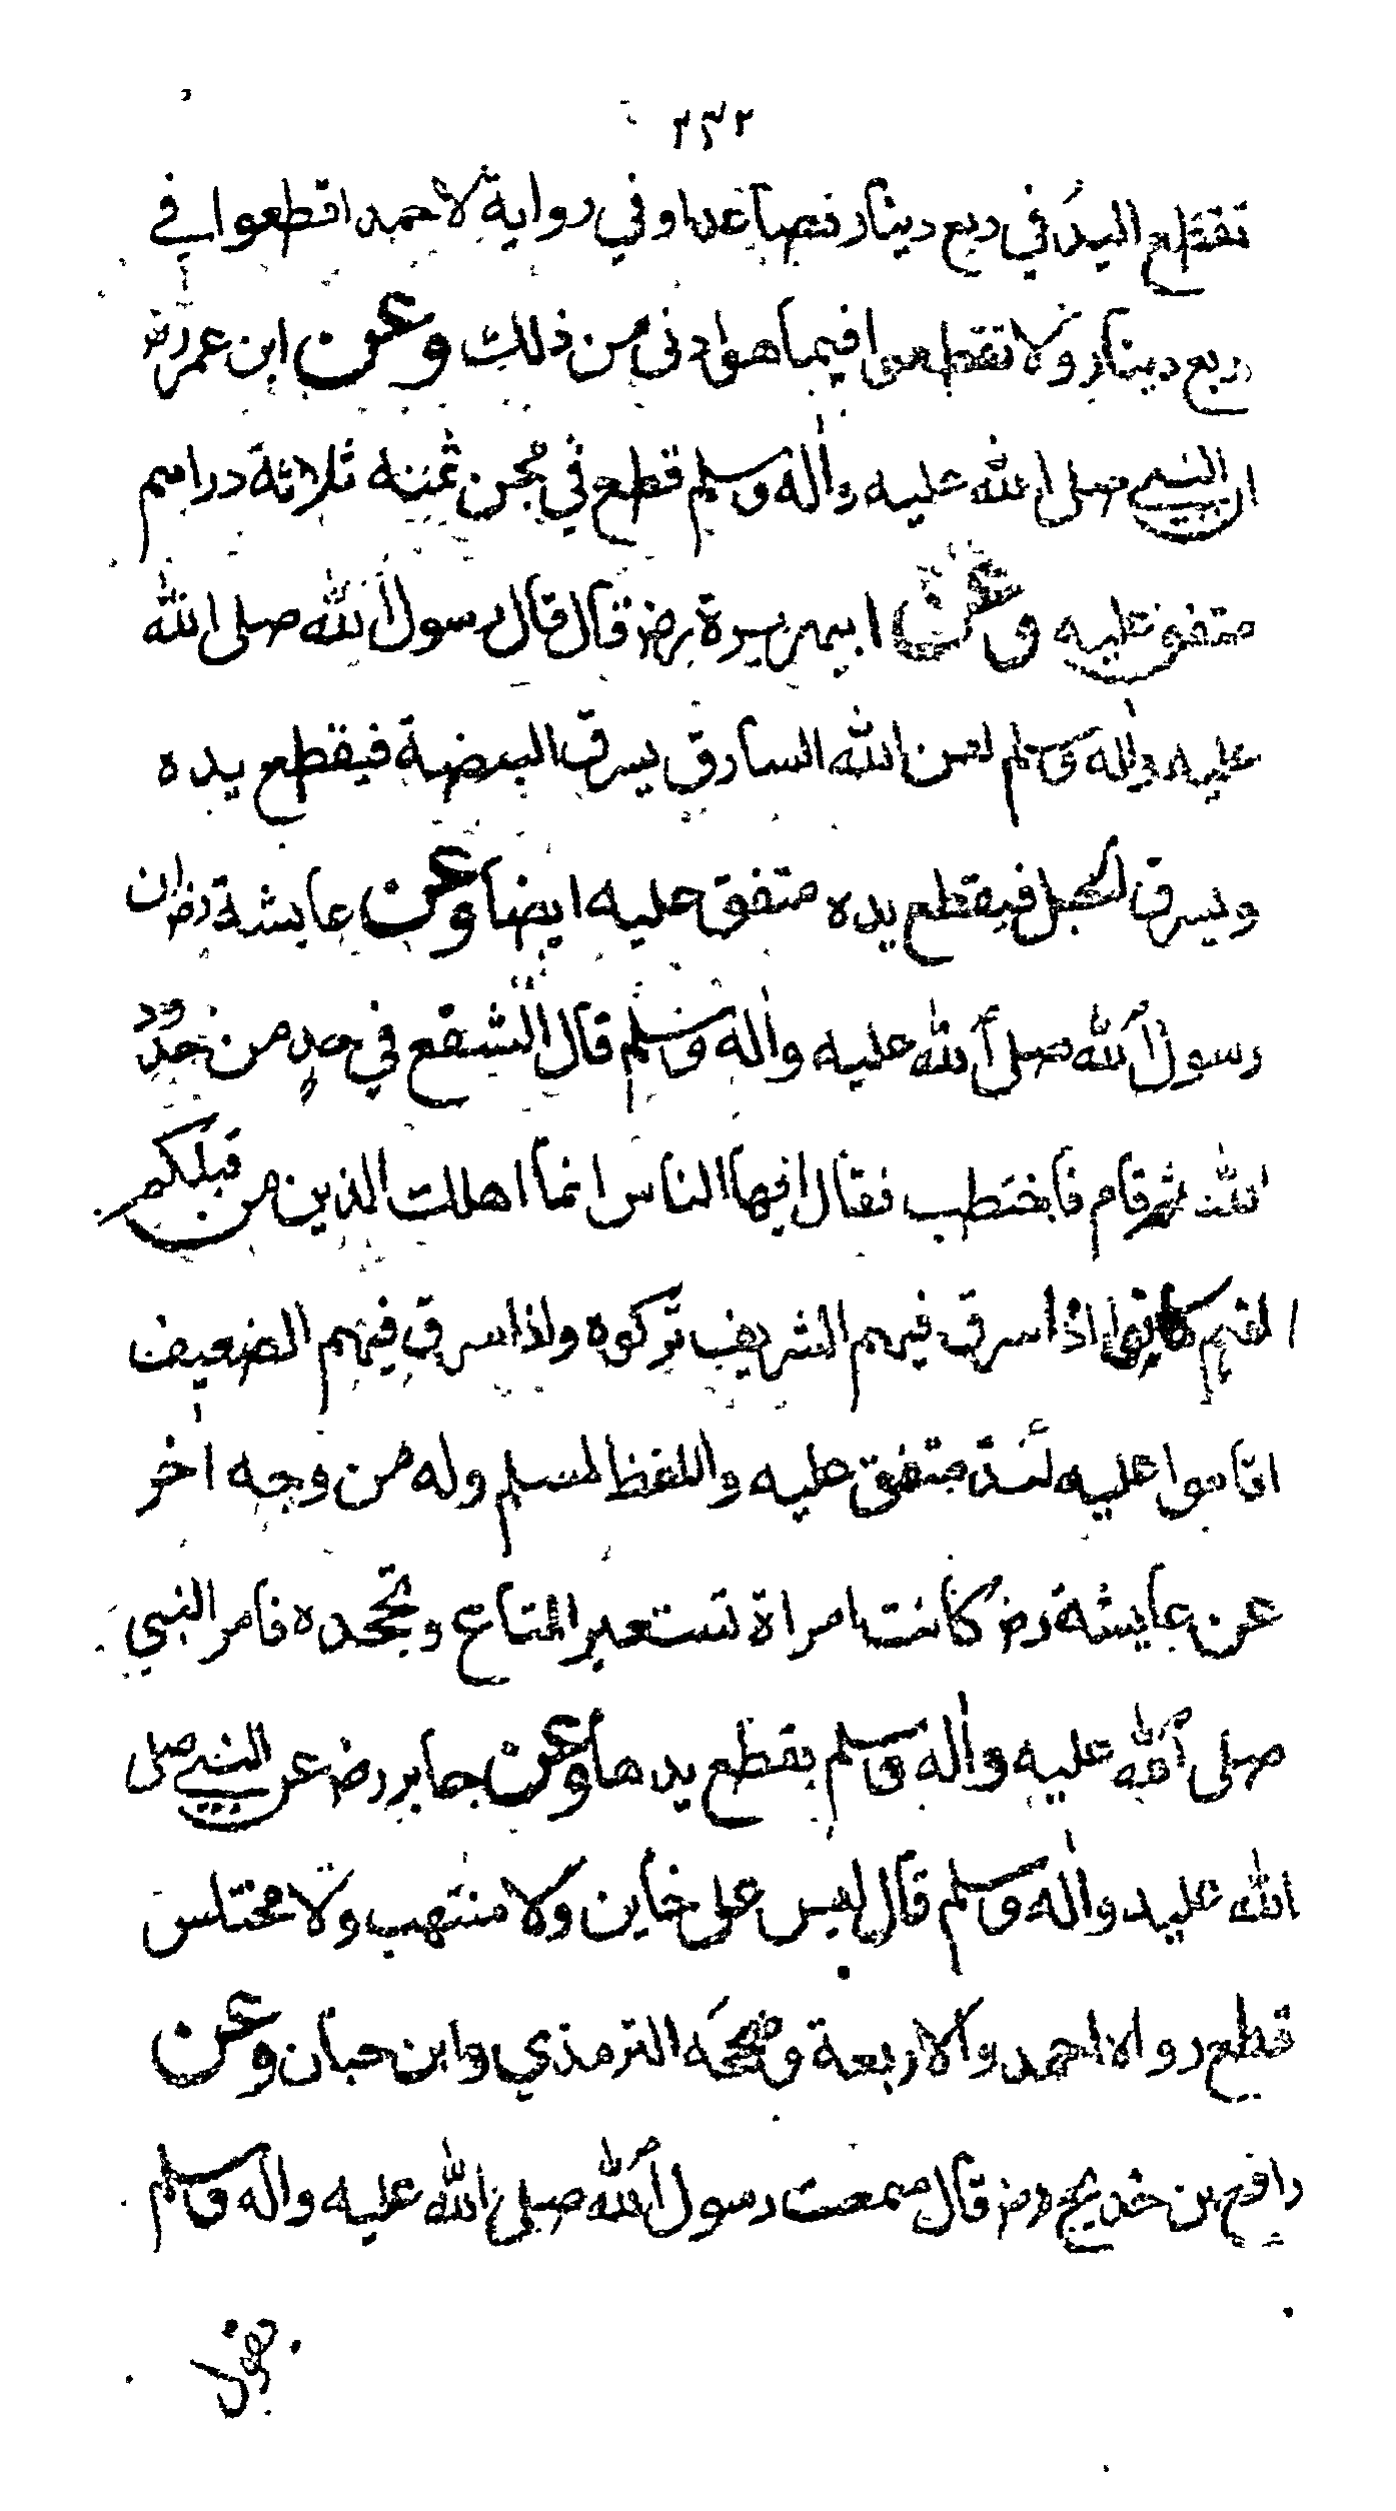 ٢٣٢
تقطع اليد في ربع دينار فصاعدا وفي رواية لاحمد اقطعوا في
ربع دينار ولا تقطعوا فيما هو ادنى من ذلك وعن ابن عمر رض
ان النبي صلى الله عليه واله وسلم قطع في مجن ثمنه ثلاثة دراهم
متفق عليه وعن ابي هريرة رض قال قال رسول الله صلى الله
عليه واله وسلم لعن الله السارق يسرق البيضة فيقطع يده
ويسرق الحبل فيقطع يده متفق عليه ايضا وعن عايشة رض ان
رسول الله صلى الله عليه واله وسلم قال اتشفع في حد من حدود
الله ثم قام فاختطب فقال ايها الناس انما اهلك الذين من قبلكم
انهم كانوا اذا سرق فيهم الشريف تركوه واذا سرق فيهم الضعيف
اقاموا عليه متفق عليه واللفظ لمسلم وله من وجه اخر
عن عايشة رض كانت امراة تستعير المتاع وتجحده فامر النبي
صلى الله عليه واله وسلم بقطع يدها وعن جابر رض عن النبي صلى
الله عليه واله وسلم قال ليس على خاين ولا منتهب ولا مختلس
قطع رواه احمد والاربعة وصححه الترمذي وابن حبان وعن
رافع بن خديج رض قال سمعت رسول الله صلى الله عليه واله وسلم